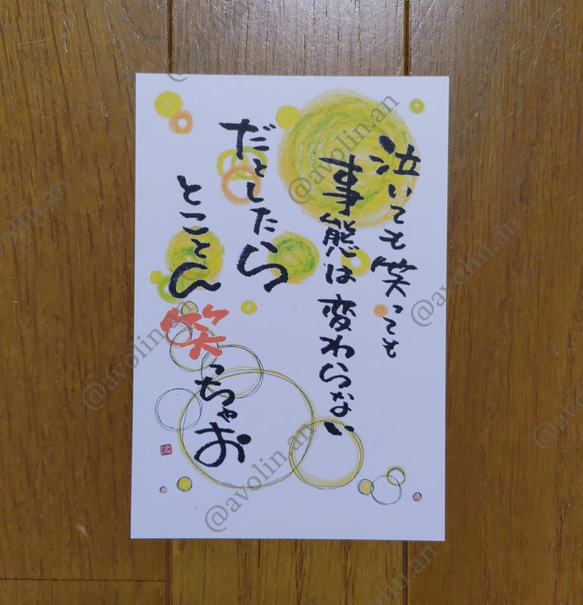 泣いても笑っても
事態は変わらない
だとしたら
とことん
笑っちゃお
@avolin.an
@avolin.an
@avolin.an
@avolin.an
@avolin.an
@avolin.an
@avolin.an